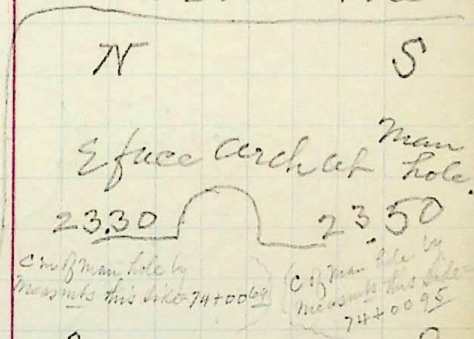 N S
E face arch at Man hole.
23.30 23.50
C of Man hole by
Measmts this side 74+0064
C of Man hole by
Measmts this side
74+0095